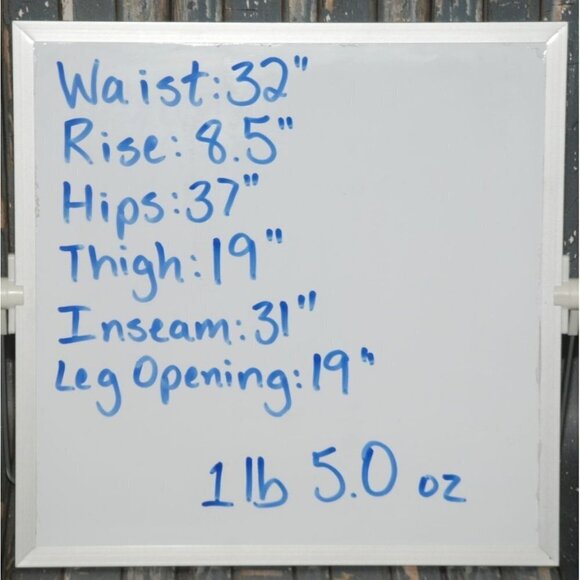 Waist: 32"
Rise: 8.5"
Hips: 37"
Thigh: 19"
Inseam: 31"
Leg Opening: 19"
1 lb 5.0 oz